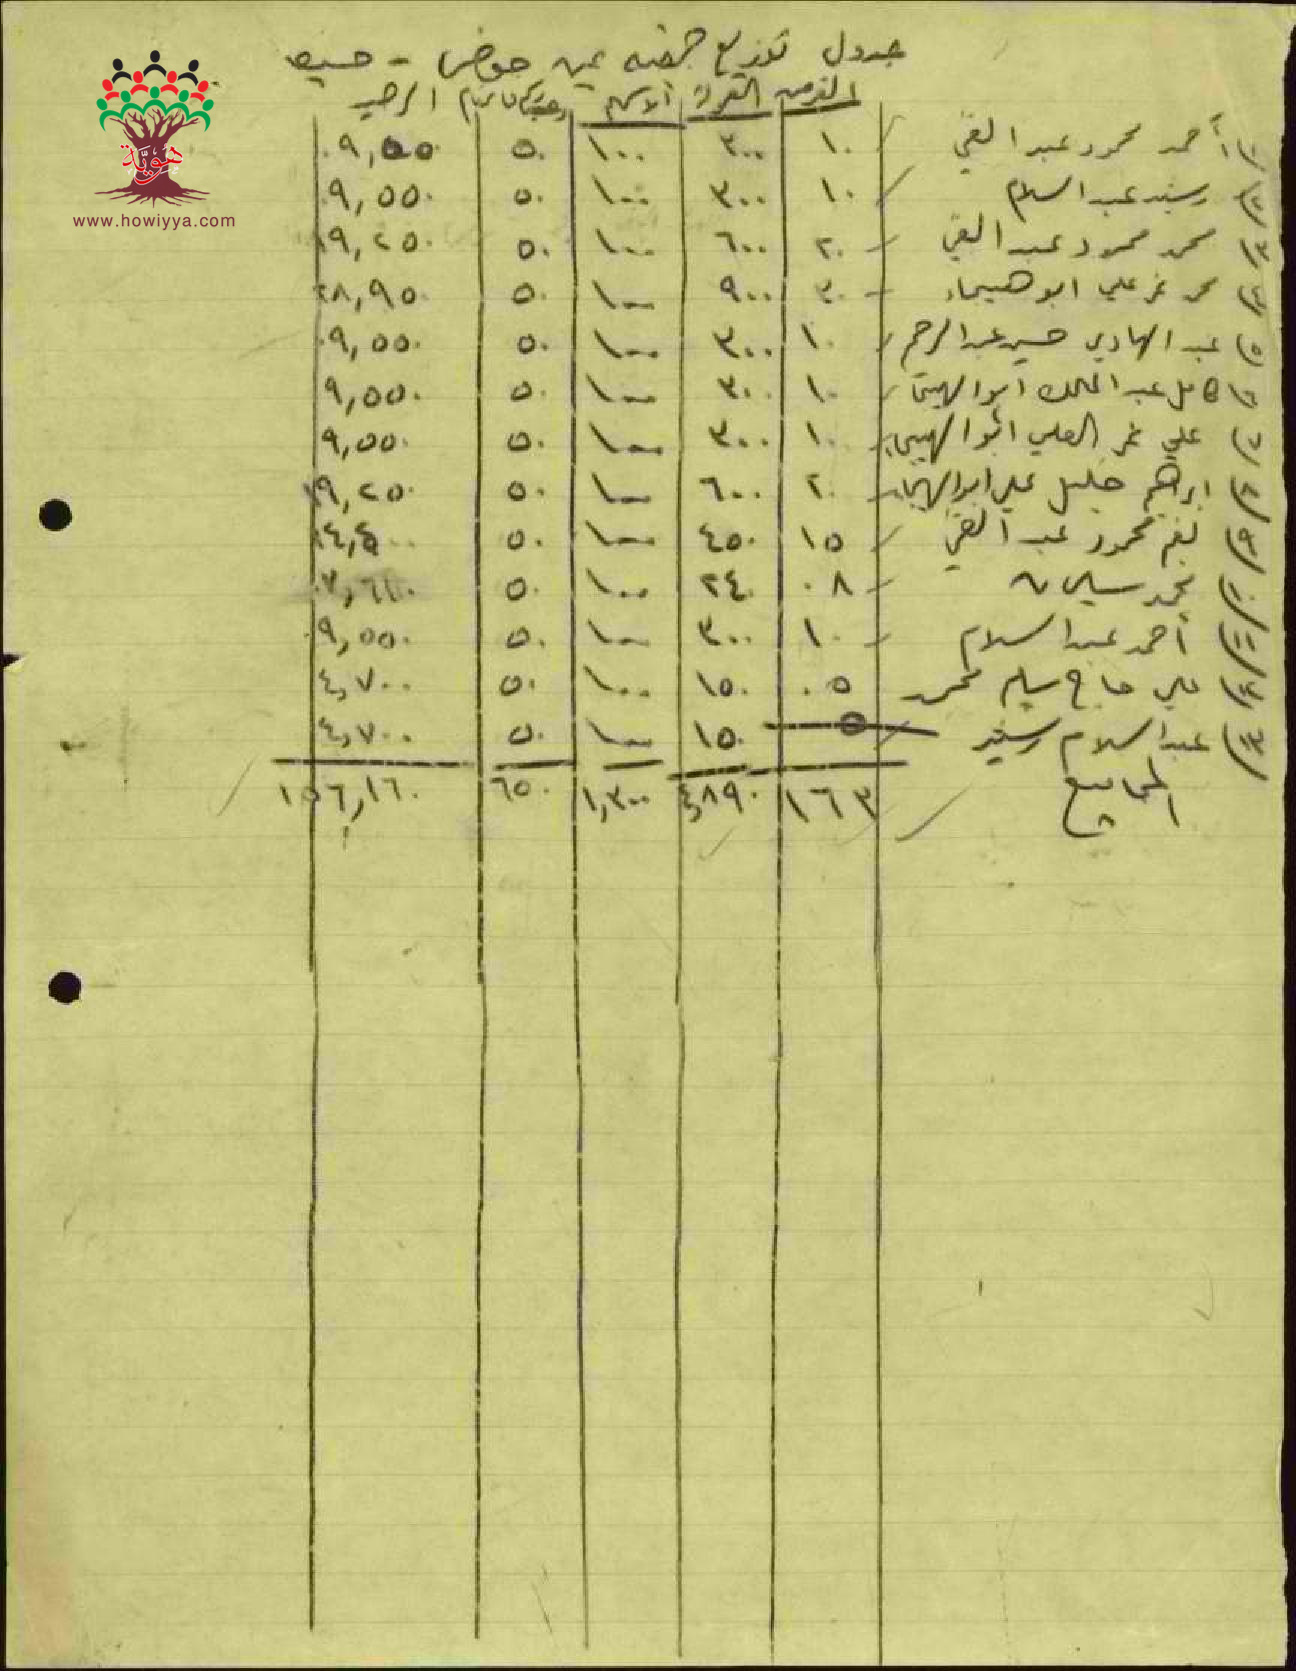 جدول توزيع جفته عين حوض - حيفا
الدونم الاسهم الرصيد
هويّة
www.howiyya.com
(١ أحمد محمود عبد الغني ١٠ ٣٠٠ ١٠٠ ٥٠ ٩,٥٥٠
(٢ رشيد عبد السلام ١٠ ٣٠٠ ١٠٠ ٥٠ ٩,٥٥٠
(٣ محمد محمود عبد الغني ٢٠ ٦٠٠ ١٠٠ ٥٠ ١٩,٢٥٠
(٤ محمد نمر علي ابو هيجاء ٣٠ ٩٠٠ ١٠٠ ٥٠ ٢٨,٩٥٠
(٥ عبد الهادي حسين عبد الرحيم ١٠ ٣٠٠ ١٠٠ ٥٠ ٩,٥٥٠
(٦ كامل عبد المالك ابو الهيجا ١٠ ٣٠٠ ١٠٠ ٥٠ ٩,٥٥٠
(٧ علي نمر العلي ابو الهيجا ١٠ ٣٠٠ ١٠٠ ٥٠ ٩,٥٥٠
(٨ ابراهيم خليل علي ابو الهيجاء ٢٠ ٦٠٠ ١٠٠ ٥٠ ١٩,٢٥٠
(٩ محمود عبد الغني ١٥ ٤٥٠ ١٠٠ ٥٠ ١٤,٤٠٠
(١٠ محمد سليمان ٠٨ ٢٤٠ ١٠٠ ٥٠ ٧,٦١٠
(١١ أحمد عبد السلام ١٠ ٣٠٠ ١٠٠ ٥٠ ٩,٥٥٠
(١٢ علي حاج سليم محمد ٠٥ ١٥٠ ١٠٠ ٥٠ ٤,٧٠٠
(١٣ عبد السلام رشيد ٥ ١٥٠ ١٠٠ ٥٠ ٤,٧٠٠
المجاميع ١٦٣ ٤,٨٩٠ ١,٣٠٠ ٦٥٠ ١٥٦,١٦٠